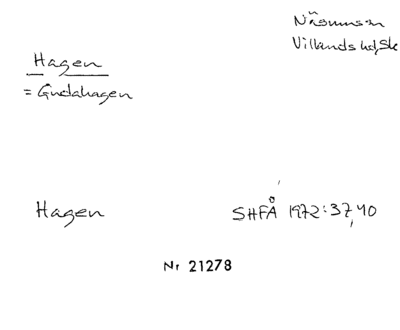 Näsums sn
Villands hd, Sk
Hagen
= Gudahagen
Hagen
SHFÅ 1972:37,40
Nr 21278